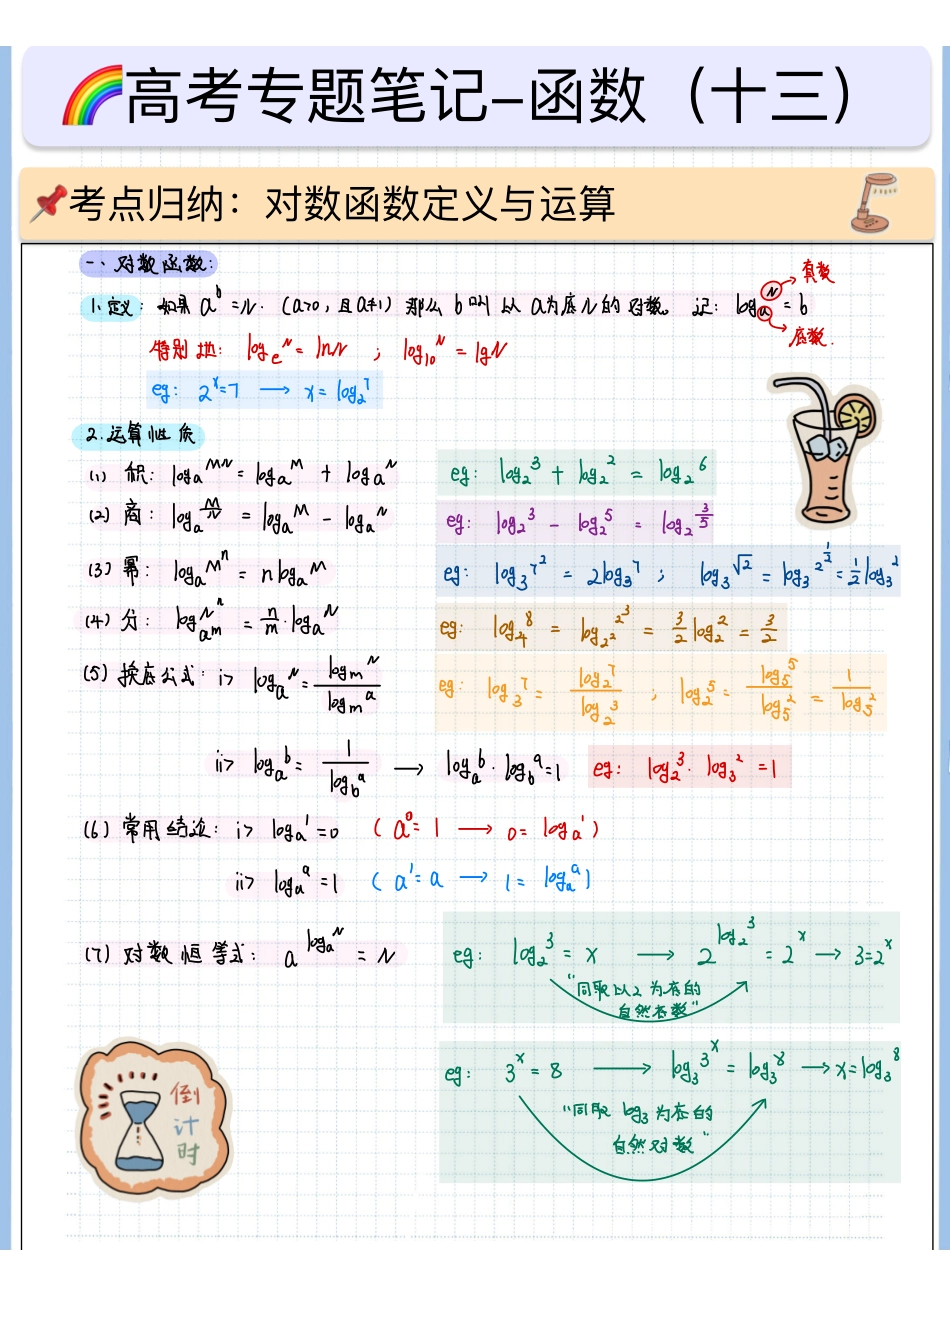 🌈高考专题笔记–函数（十三）
📌考点归纳：对数函数定义与运算
一、对数函数：
1.定义：如果 a^b = N.（a>0，且a≠1）那么 b叫以a为底N的对数。记：log_a N = b
真数
底数.
特别地：log_e N = lnN ；log_10 N = lgN
eg：2^x=7 ⟶ x = log_2 7
2.运算性质
(1) 积：log_a MN = log_a M + log_a N eg：log_2 3 + log_2 2 = log_2 6
(2) 商：log_a M/N = log_a M − log_a N eg：log_2 3 − log_2 5 = log_2 3/5
(3) 幂：log_a M^n = n log_a M eg：log_3 7^2 = 2log_3 7 ；log_3 √2 = log_3 2^(1/2) = 1/2 log_3 2
(4) 分：log_(a^m) N^n = n/m · log_a N eg：log_4 8 = log_(2^2) 2^3 = 3/2 log_2 2 = 3/2
(5) 换底公式：i> log_a N = log_m N / log_m a eg：log_3 7 = log_2 7 / log_2 3 ；log_2 5 = log_5 5 / log_5 2 = 1 / log_5 2
ii> log_a b = 1 / log_b a ⟶ log_a b · log_b a = 1 eg：log_2 3 · log_3 2 = 1
(6) 常用结论：i> log_a 1 = 0 （a^0 = 1 ⟶ 0 = log_a 1）
ii> log_a a = 1 （a^1 = a ⟶ 1 = log_a a）
(7) 对数恒等式：a^(log_a N) = N eg：log_2 3 = x ⟶ 2^(log_2 3) = 2^x ⟶ 3=2^x
“同取以2为底的
自然对数”
eg：3^x = 8 ⟶ log_3 3^x = log_3 8 ⟶ x=log_3 8
“同取 log_3 为底的
自然对数”
倒
计
时